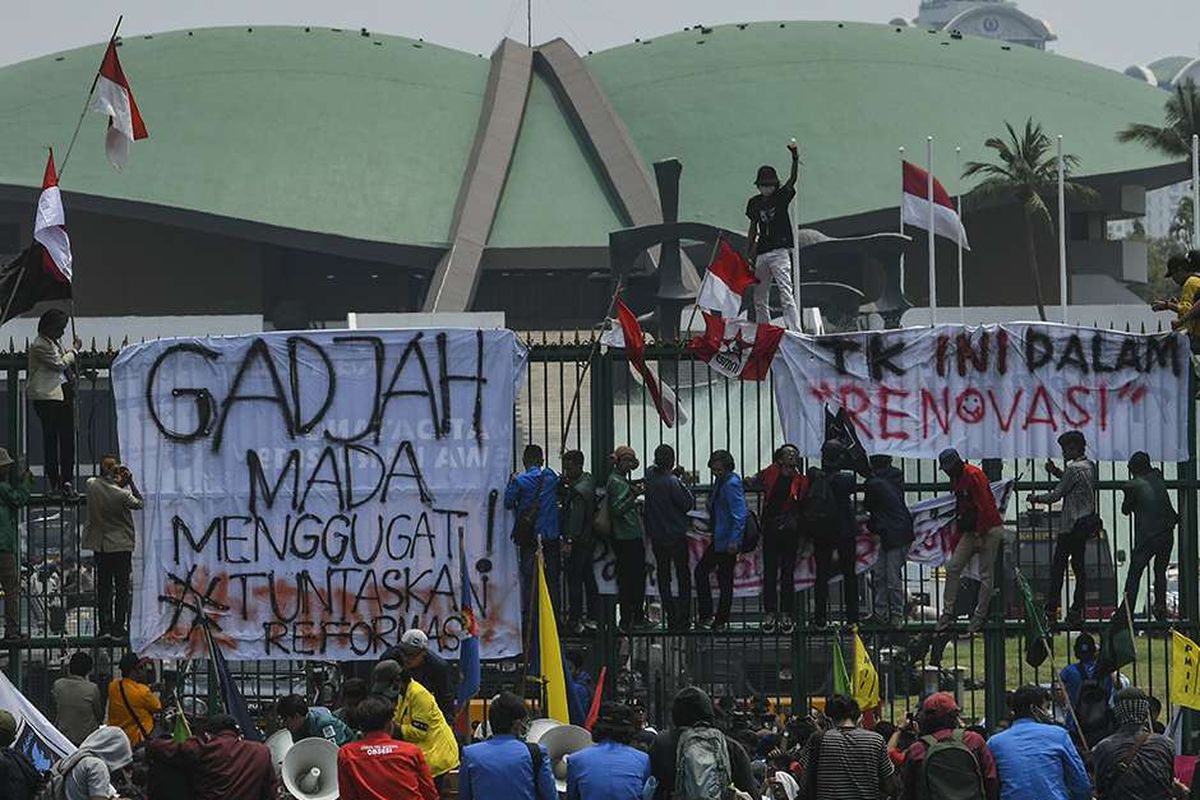 GADJAH
MADA
MENGGUGAT!
#TUNTASKAN
REFORMASI
TK INI DALAM
"RENOVASI"
PMII